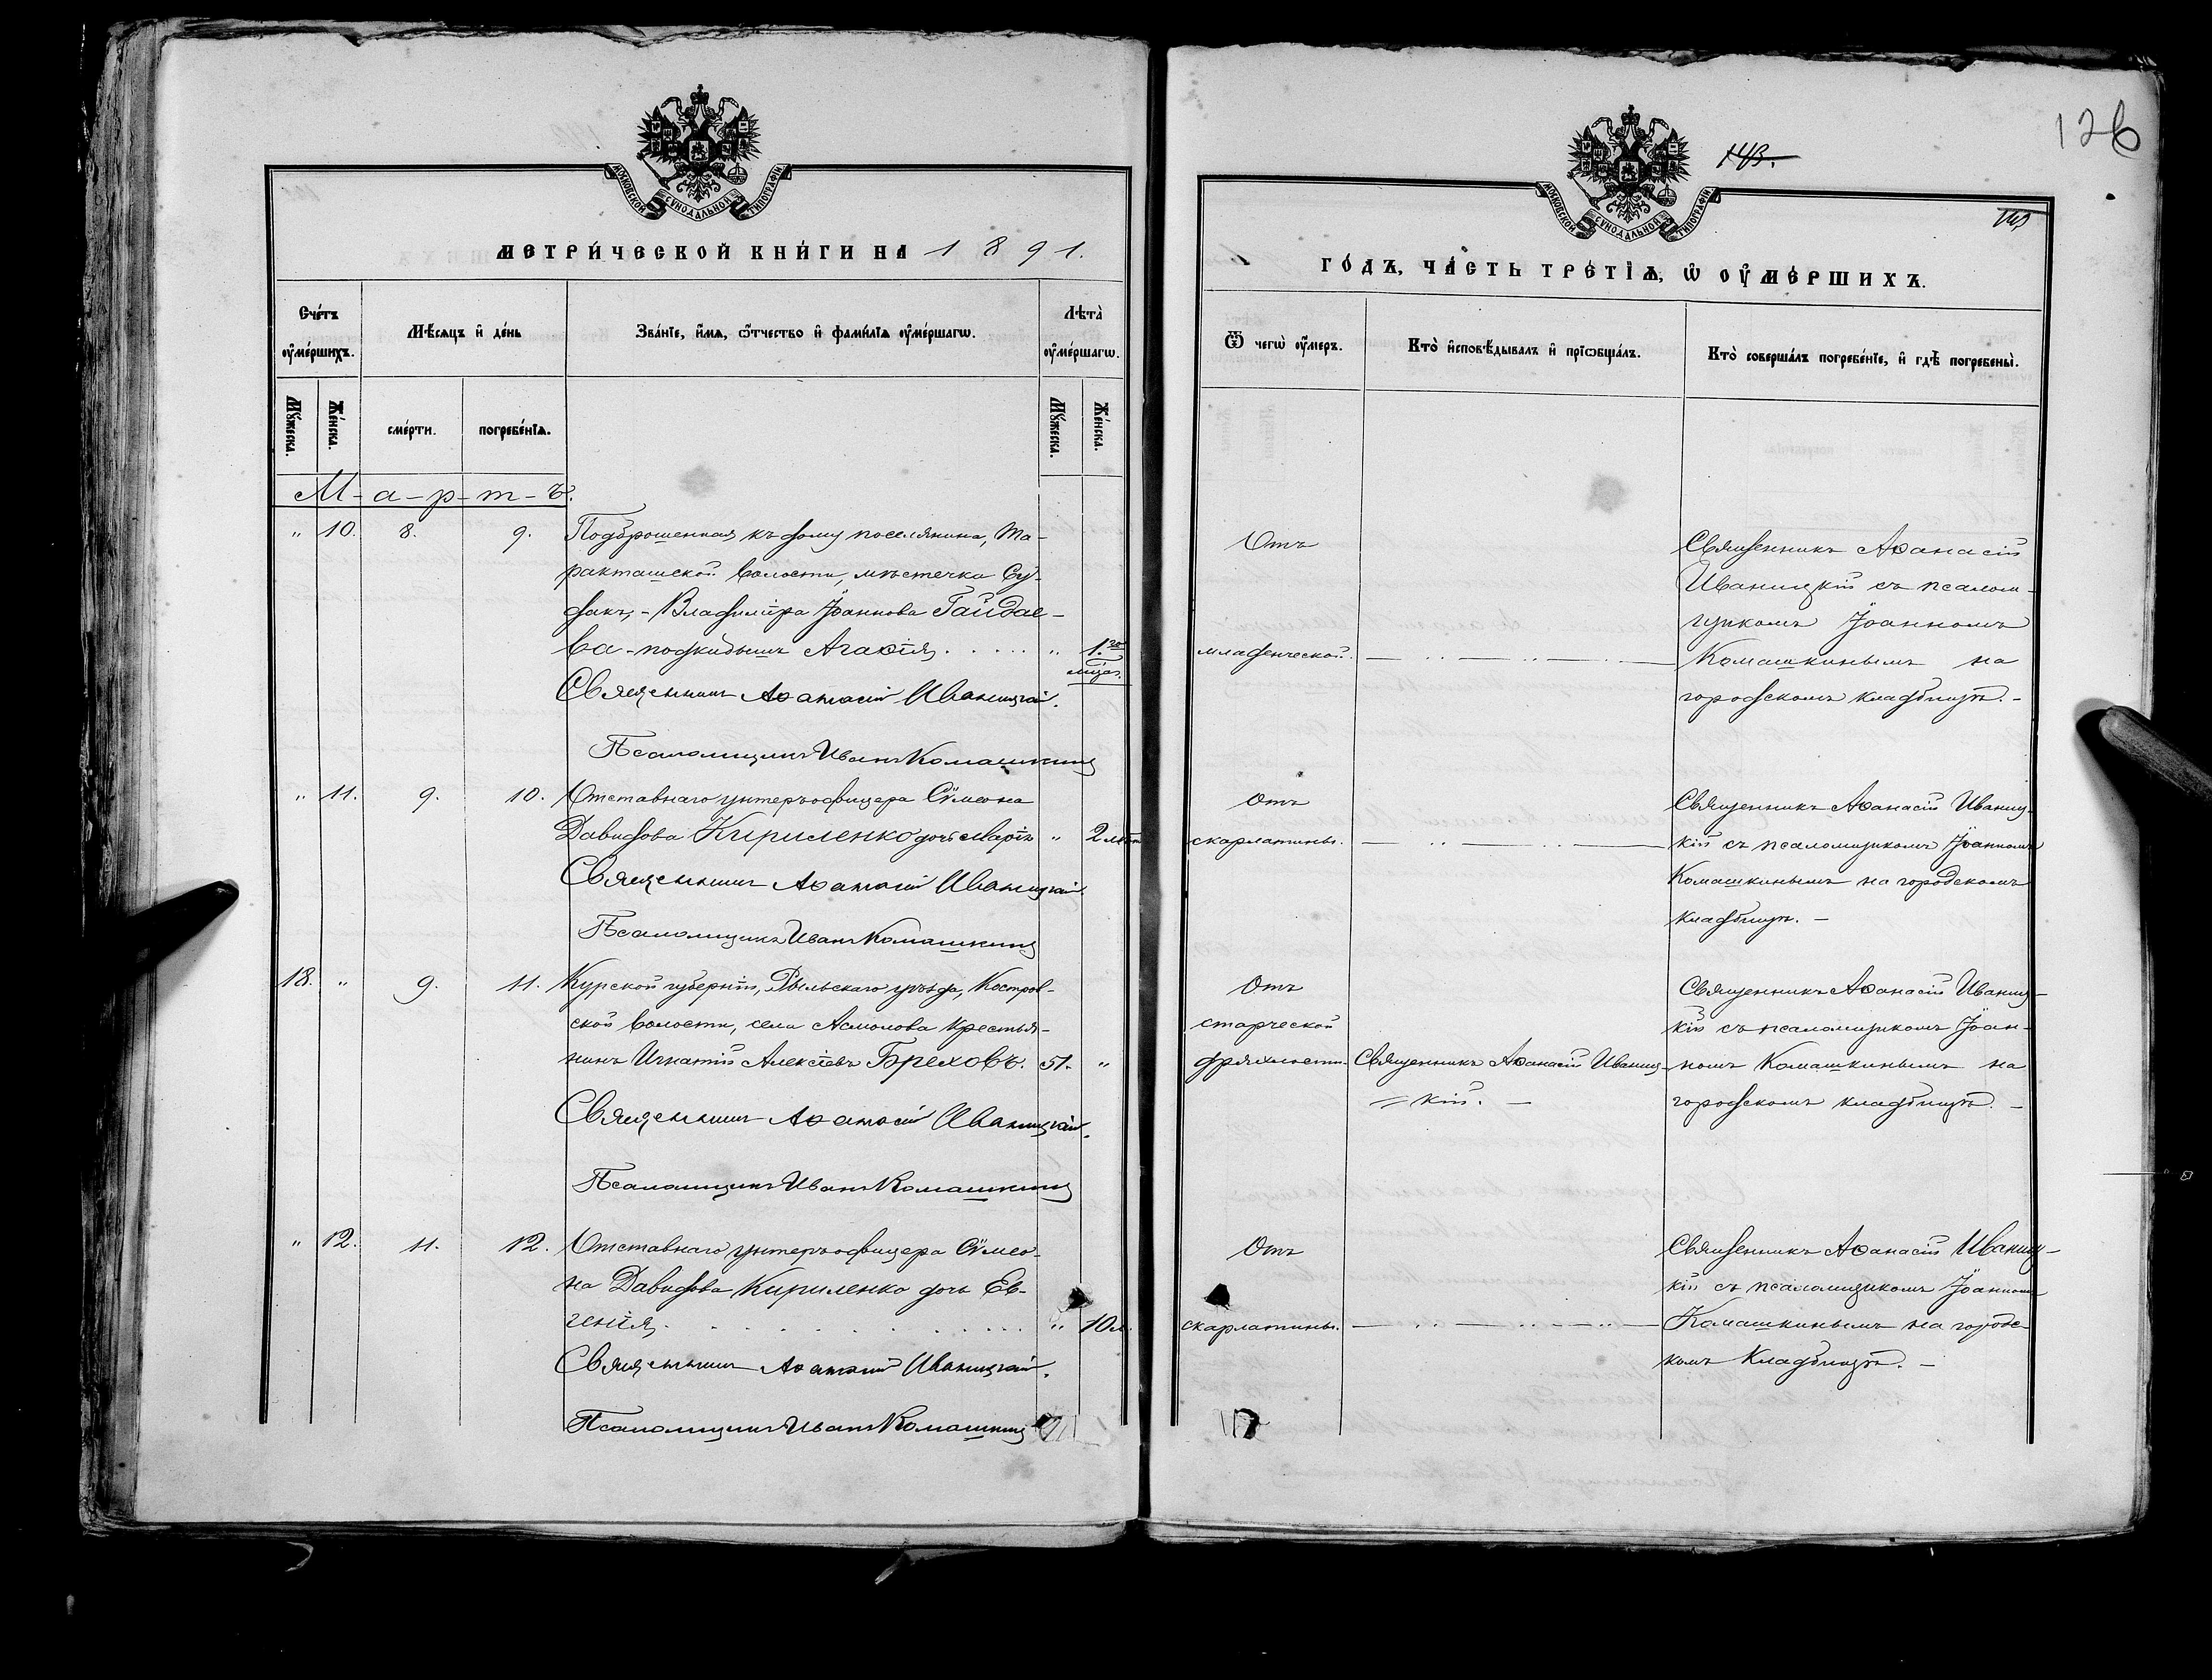 МОСКОВСКОЙ СѴНОДАЛЬНОЙ ТИПОГРАФІИ
МЕТРИ́ЧЕСКОЙ КНИ́ГИ НА 1891.
Сче́тъ ᲂу҆ме́ршихъ.
Мѣ́сяцъ и҆ де́нь
Зва́нїе, и҆́мѧ, ѻ҆́тчество и҆ фами́лїѧ ᲂу҆ме́ршагѡ.
Лѣ́та ᲂу҆ме́ршагѡ.
Мꙋ́жеска.
Же́нска.
сме́рти.
погребе́нїѧ.
Мꙋ́жеска.
Же́нска.
М-а-р-т-ъ.
" 10. 8. 9. Подброшенная къ дому поселянина, Та-
ракташской волости, мѣстечка Су-
дакъ,- Владиміра Іоаннова Гайдае-
ва-подкидышъ Агаѳія " 1.
мѣся.
Священникъ Аѳанасій Иваницкій.
Псаломщикъ Иванъ Комашкинъ
" 11. 9. 10. Отставнаго унтеръ-офицера Сѵмеона
Давидова Кириленко дочь Марія " 2 лѣт
Священникъ Аѳанасій Иваницкій.
Псаломщикъ Иванъ Комашкинъ
18. " 9. 11. Курской губерніи, Рыльскаго уѣзда, Костров-
ской волости, села Асмолова крестья-
нинъ Игнатій Алексѣевъ Бреховъ. 51. "
Священникъ Аѳанасій Иваницкій.
Псаломщикъ Иванъ Комашкинъ
" 12. 11. 12. Отставнаго унтеръ-офицера Сѵмео-
на Давидова Кириленко дочь Ев-
генія " 10 л.
Священникъ Аѳанасій Иваницкій.
Псаломщикъ Иванъ Комашкинъ
126
143.
МОСКОВСКОЙ СѴНОДАЛЬНОЙ ТИПОГРАФІИ
ГО́ДЪ, ЧА́СТЬ ТРЕ́ТЇѦ, Ѡ҆ ОУ҆МЕ́РШИХЪ.
Ѿ чегѡ̀ ᲂу҆́меръ.
Кто̀ и҆сповѣ́дывалъ и҆ прїѡбща́лъ.
Кто̀ соверша́лъ погребе́нїе, и҆ гдѣ̀ погребены̀.
Отъ
младенческой.
Священникъ Аѳанасій
Иваницкій съ псалом-
щикомъ Іоанномъ
Комашкинымъ на
городскомъ кладбищѣ.-
Отъ
скарлатины.
Священникъ Аѳанасій Иваниц-
кій съ псаломщикомъ Іоанномъ
Комашкинымъ на городскомъ
кладбищѣ.-
Отъ
старческой
дряхлости.
Священникъ Аѳанасій Иваниц-
кій.-
Священникъ Аѳанасій Иваниц-
кій съ псаломщикомъ Іоан-
номъ Комашкинымъ на
городскомъ кладбищѣ.-
Отъ
скарлатины.
Священникъ Аѳанасій Иваниц-
кій съ псаломщикомъ Іоанномъ
Комашкинымъ на городс-
комъ Кладбищѣ.-